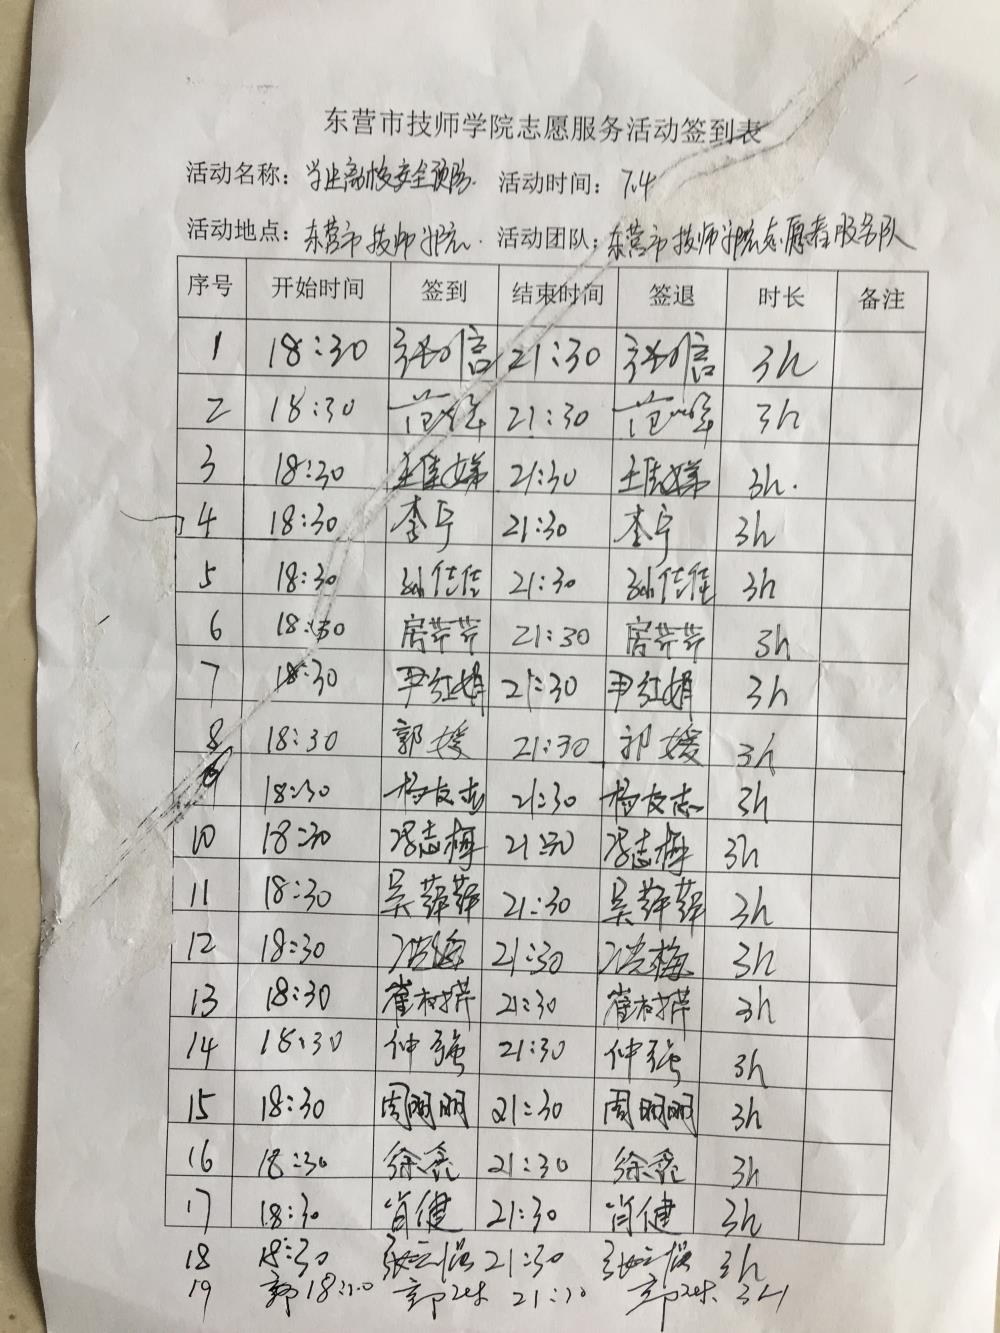 东营市技师学院志愿服务活动签到表
活动名称： 安全预防. 活动时间： 7.4
活动地点： 东营市技师学院. 活动团队: 东营市技师学院志愿者服务队
序号 开始时间 签到 结束时间 签退 时长 备注
1 18:30 信 21:30 信 3h
2 18:30 范 21:30 范 3h
3 18:30 王佳娣 21:30 王佳娣 3h.
4 18:30 李宁 21:30 李宁 3h
5 18:30 孙佳佳 21:30 孙佳佳 3h
6 18:30 房芹芹 21:30 房芹芹 3h
7 18:30 尹红娟 21:30 尹红娟 3h
8 18:30 郭媛 21:30 郭媛 3h
9 18:30 杨友志 21:30 杨友志 3h
10 18:30 冯志梅 21:30 冯志梅 3h
11 18:30 吴萍萍 21:30 吴萍萍 3h
12 18:30 洪梅 21:30 洪梅 3h
13 18:30 崔 21:30 崔 3h
14 18:30 仲强 21:30 仲强 3h
15 18:30 周丽丽 21:30 周丽丽 3h
16 18:30 徐鑫 21:30 徐鑫 3h
17 18:30 肖健 21:30 肖健 3h
18 18:30 张 21:30 张 3h
19 郭 18:30 郭 21:30 郭 3h